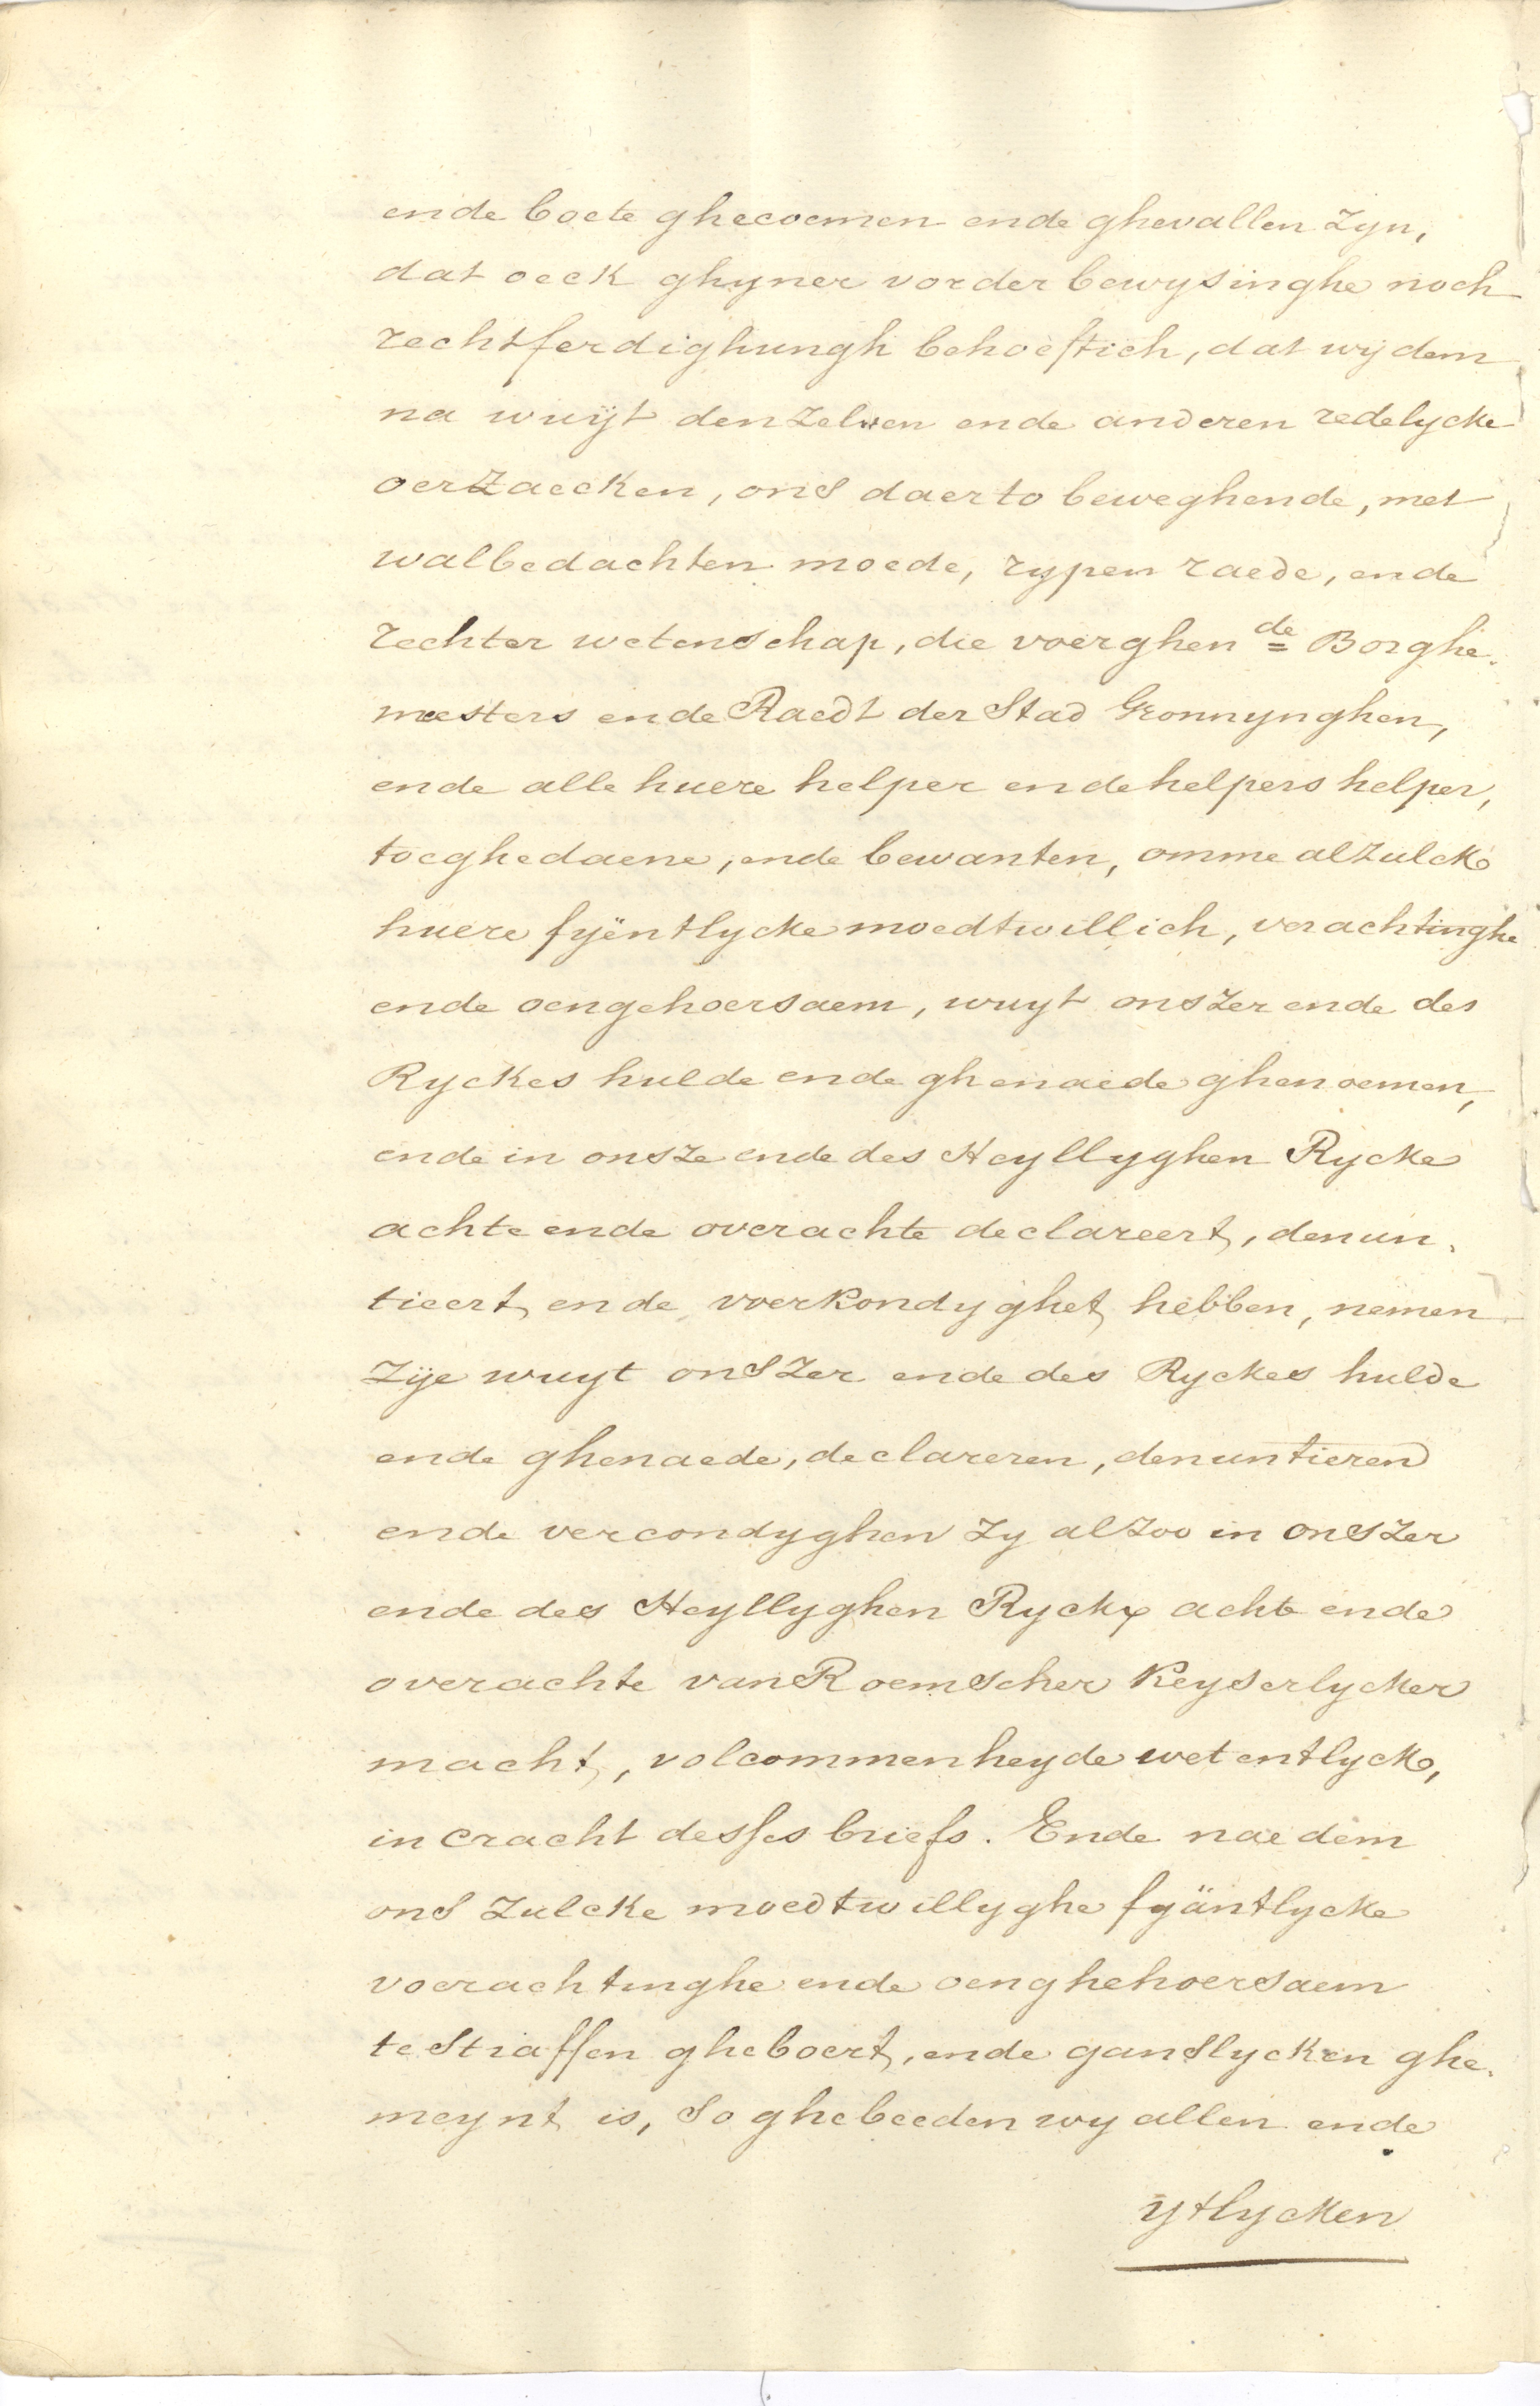 ende boete ghecoemen ende ghevallen zyn,
dat oeck ghyner vorder bewysinghe noch
rechtferdighungh behoeftich, dat wij dem
na wuijt den zelven ende anderen redelycke
oerzaecken, ons daerto beweghende, met
walbedachten moede, rypen raede, ende
rechter wetenschap, die voerghen de Borghe-
meesters ende Raedt der Stad Gronnynghen,
ende alle huere helper ende helpers helper,
toeghedaene, ende bewanten, omme alzulcke
huere fyëntlycke moedtwillich, verachtinghe
ende oengehoersaem, wuyt onszer ende des
Ryckes hulde ende ghenaede ghenoemen,
ende in onsze ende des Heyllyghen Rycke
achte ende overachte declareert, denun-
tieert ende voerkondyghet hebben, nemen
Zije wuyt onszer ende des Ryckes hulde
ende ghenaede, declareren, denuntieren
ende vercondyghen zy alzoo in onszer
ende des Heyllyghen Ryckx achte ende
overachte van Roemscher Keyserlycker
macht, volcommenheyde wetentlycke,
in cracht desses briefs. Ende nae dem
ons zulcke moedtwillyghe fyäntlycke
voerachtinghe ende oenghehoersaem
te straffen gheboert, ende ganslycken ghe-
meynt is, so ghebeeden wy allen ende
ytlycken